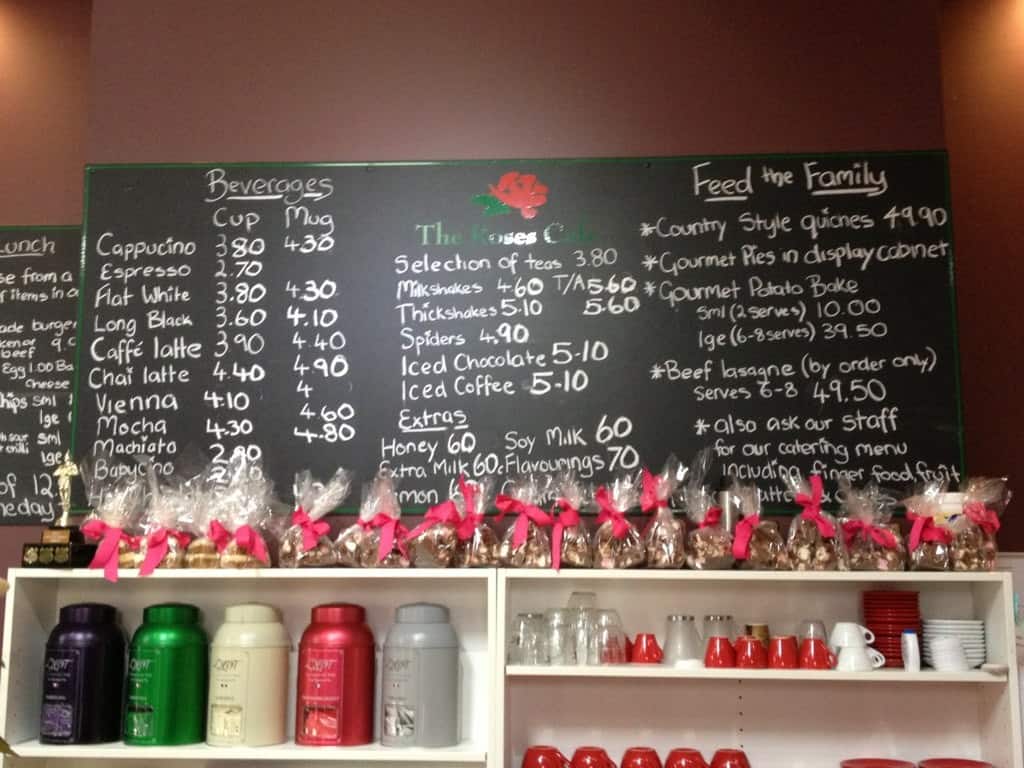 Lunch
Beverages
Cup Mug
Cappucino 3.80 4.30
Espresso 2.70
Flat White 3.80 4.30
Long Black 3.60 4.10
Caffé latte 3.90 4.40
Chai latte 4.40 4.90
Vienna 4.10 4
Mocha 4.30 4.60
Machiato 2.80 4.80
Babycino
The Roses Cafe
Selection of teas 3.80
Milkshakes 4.60 T/A 5.60
Thickshakes 5.10 5.60
Spiders 4.90
Iced Chocolate 5-10
Iced Coffee 5-10
Extras
Honey 60 Soy Milk 60
Extra Milk 60c Flavourings 70
Feed the Family
*Country Style quiches 49.90
*Gourmet Pies in display cabinet
*Gourmet Potato Bake
sml (2 serves) 10.00
lge (6-8 serves) 39.50
*Beef lasagne (by order only)
serves 6-8 49.50
*also ask our staff
for our catering menu
including finger food, fruit